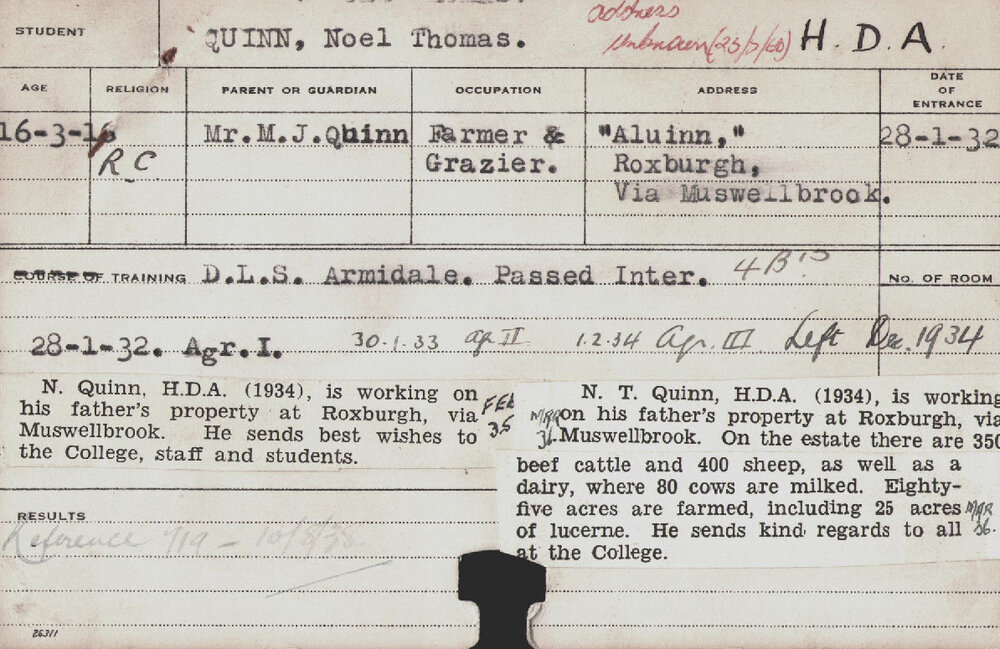 STUDENT
QUINN, Noel Thomas.
address
unknown (23/3/60)
H.D.A.
AGE
RELIGION
PARENT OR GUARDIAN
OCCUPATION
ADDRESS
DATE
OF
ENTRANCE
16-3-16
R.C
Mr.M.J.Quinn
Farmer &
Grazier.
"Aluinn,"
Roxburgh,
Via Muswellbrook.
28-1-32
COURSE OF TRAINING
D.L.S. Armidale. Passed Inter.
4 B's
No. OF ROOM
28-1-32. Agr.I.
30.1.33 Agr II
1.2.34 Agr. III
Left Dec. 1934
N. Quinn, H.D.A. (1934), is working on
his father's property at Roxburgh, via
Muswellbrook. He sends best wishes to
the College, staff and students.
FEB
35
N. T. Quinn, H.D.A. (1934), is working
on his father's property at Roxburgh, via
Muswellbrook. On the estate there are 350
beef cattle and 400 sheep, as well as a
dairy, where 80 cows are milked. Eighty-
five acres are farmed, including 25 acres
of lucerne. He sends kind regards to all
at the College.
MAR
36.
MAR
36.
RESULTS
Reference 719 - 10/8/38
26311